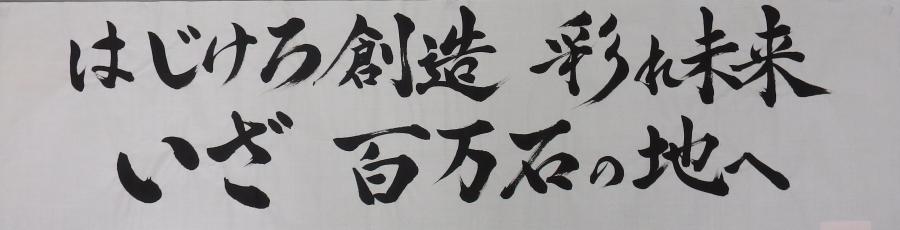 はじけろ創造 彩れ未来
いざ 百万石の地へ